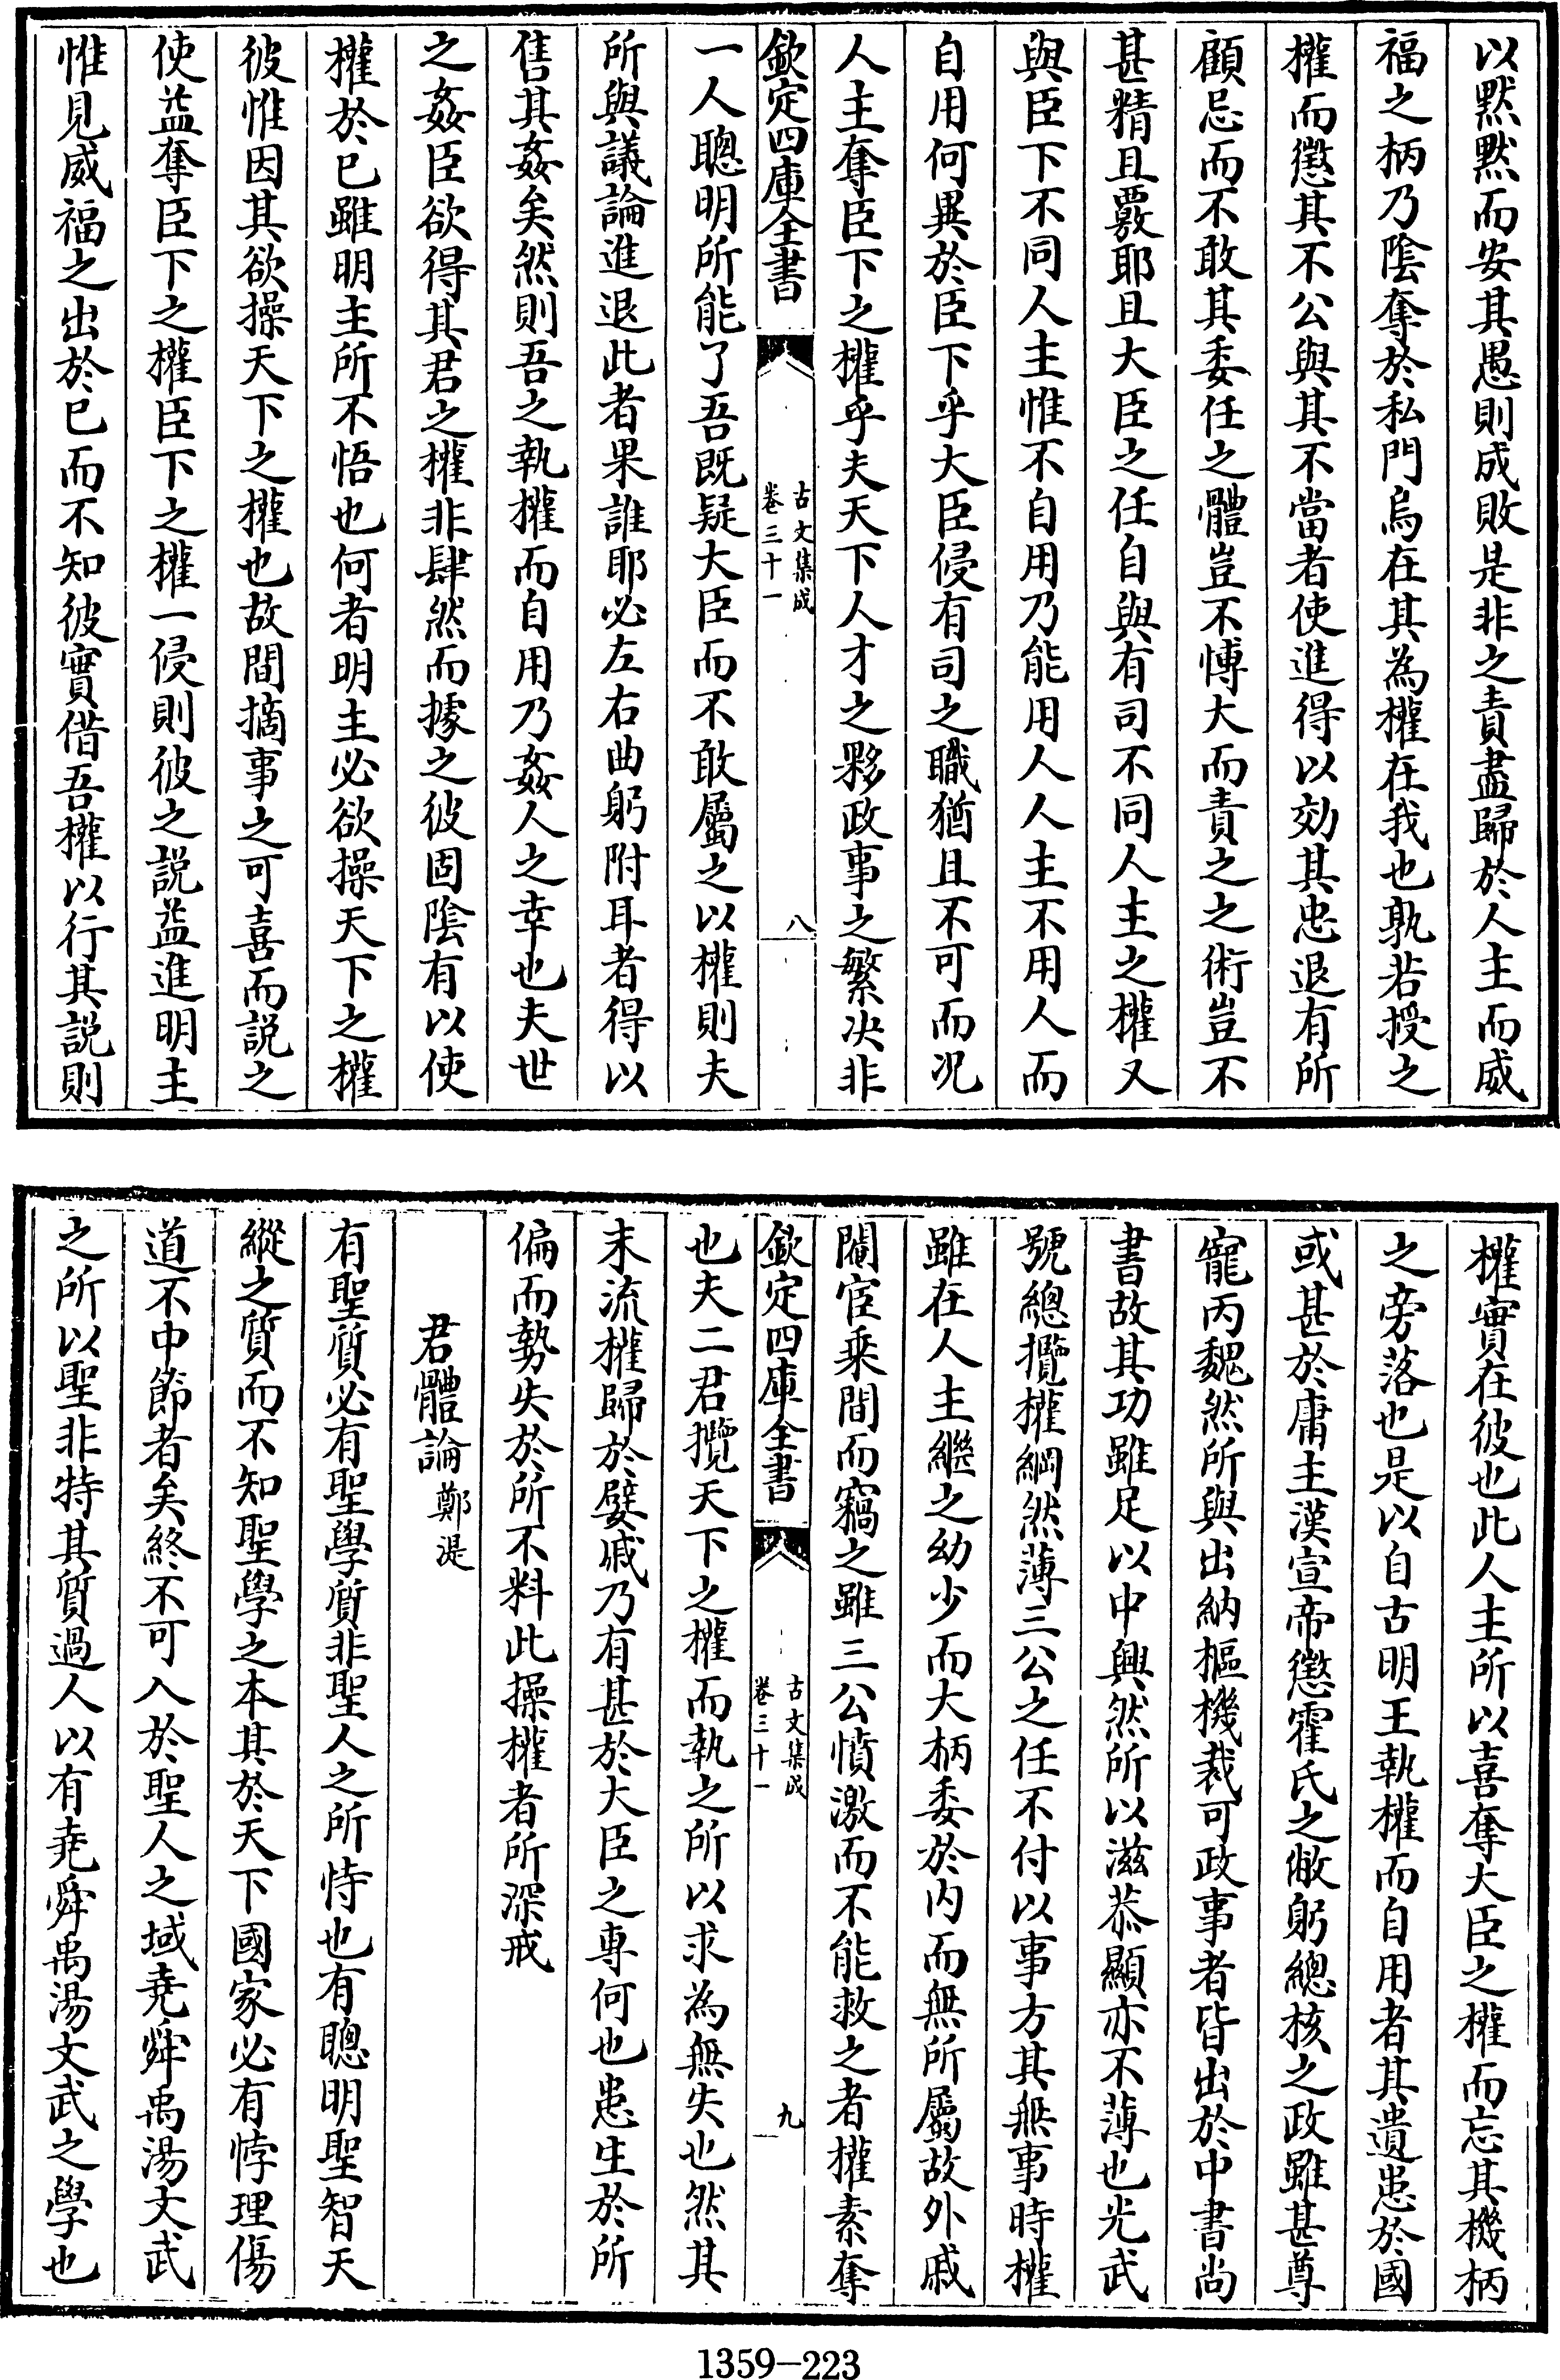 以默默而安其愚則成敗是非之責盡歸於人主而威
福之柄乃陰奪於私門烏在其為權在我也孰若授之
權而懲其不公與其不當者使進得以効其忠退有所
顧忌而不敢其委任之體豈不愽大而責之之術豈不
甚精且覈耶且大臣之任自與有司不同人主之權又
與臣下不同人主惟不自用乃能用人人主不用人而
自用何異於臣下乎大臣侵有司之職猶且不可而况
人主奪臣下之權乎夫天下人才之夥政事之繁决非
欽定四庫全書
古文集成
卷三十一
八
一人聰明所能了吾既疑大臣而不敢屬之以權則夫
所與議論進退此者果誰耶必左右曲躬附耳者得以
售其姦矣然則吾之執權而自用乃姦人之幸也夫世
之姦臣欲得其君之權非肆然而據之彼固陰有以使
權於已雖明主所不悟也何者明主必欲操天下之權
彼惟因其欲操天下之權也故間摘事之可喜而說之
使益奪臣下之權臣下之權一侵則彼之説益進明主
惟見威福之出於已而不知彼實借吾權以行其説則
權實在彼也此人主所以喜奪大臣之權而忘其機柄
之旁落也是以自古明王執權而自用者其遺患於國
或甚於庸主漢宣帝懲霍氏之敝躬總核之政雖甚尊
寵丙魏然所與出納樞機裁可政事者皆出於中書尚
書故其功雖足以中興然所以滋恭顯亦不薄也光武
號總攬權綱然薄三公之任不付以事方其無事時權
雖在人主繼之幼少而大柄委於内而無所屬故外戚
閹宦乘間而竊之雖三公憤激而不能救之者權素奪
欽定四庫全書
古文集成
卷三十一
九
也夫二君攬天下之權而執之所以求為無失也然其
末流權歸於嬖戚乃有甚於大臣之專何也患生於所
偏而勢失於所不料此操權者所深戒
君體論 鄭湜
有聖質必有聖學質非聖人之所恃也有聰明聖智天
縱之質而不知聖學之本其於天下國家必有悖理傷
道不中節者矣終不可入於聖人之域堯舜禹湯文武
之所以聖非特其質過人以有堯舜禹湯文武之學也
1359-223